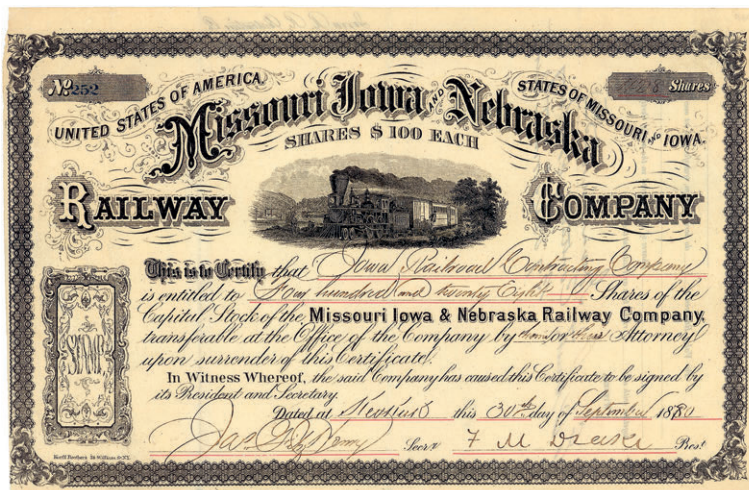 No 252
Shares
UNITED STATES OF AMERICA.
STATES OF MISSOURI AND IOWA.
Missouri Iowa AND Nebraska
SHARES $100 EACH
RAILWAY COMPANY
This is to Certify that Iowa Railroad Contracting Company
is entitled to Four hundred and twenty Eight Shares of the
Capital Stock of the Missouri Iowa & Nebraska Railway Company,
transferable at the Office of the Company by them or their Attorney
upon surrender of this Certificate.
In Witness Whereof, the said Company has caused this Certificate to be signed by
its President and Secretary.
Dated at Keokuk this 30th day of September 1880
STAMP.
Secy F M Drake Prest